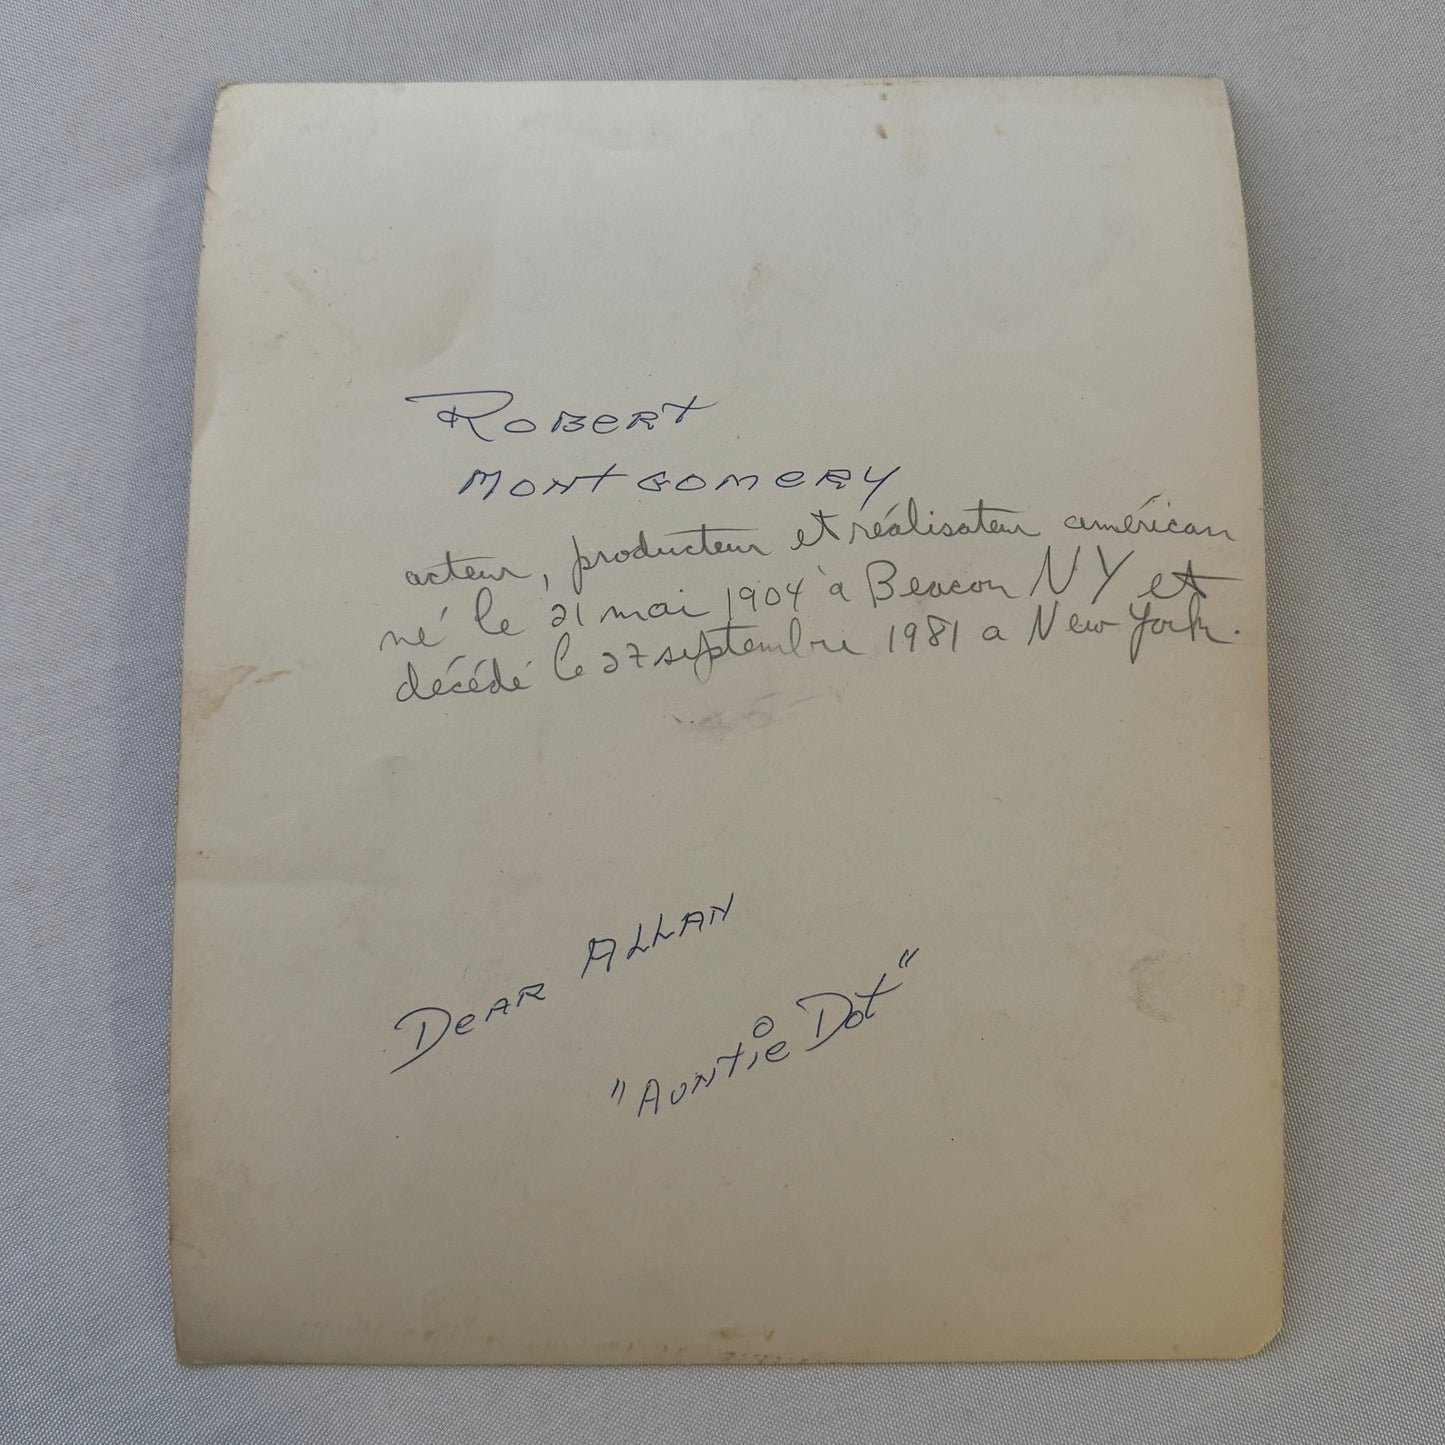 ROBERT
MONTGOMERY
acteur, producteur et réalisateur américan
né le 21 mai 1904 à Beacon NY et
décédé le 27 septembre 1981 a New York.
DEAR ALLAN
"AUNTIE DOT"